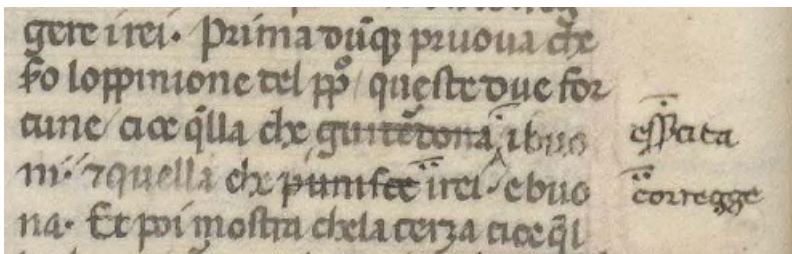 gere irei. Prima dūqꝫ pruova che
ẜo loppinione del ꝓꝓo / queste due for
tune / cioe qͥlla che guitēdona ibuo
ni. ⁊ quella che punisce irei. e buo
na. Et poi mostra che la terza cioe ql̄
esſcita
corregge